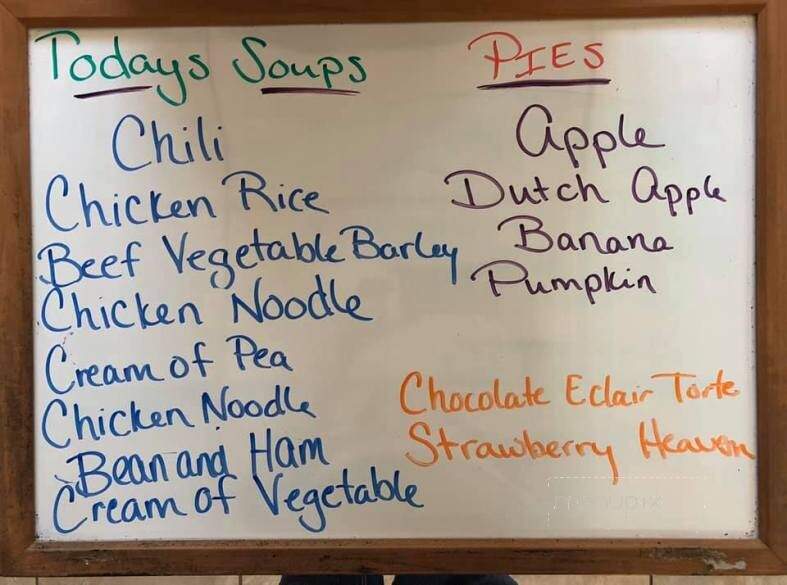 Todays Soups
Chili
Chicken Rice
Beef Vegetable Barley
Chicken Noodle
Cream of Pea
Chicken Noodle
Bean and Ham
Cream of Vegetable
PIES
Apple
Dutch Apple
Banana
Pumpkin
Chocolate Eclair Torte
Strawberry Heaven